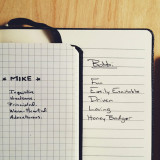 * MIKE *
Inquisitive
Handsome.
Principled.
Warm-Hearted.
Adventurous.
Bobbi.
Fun
Easily Excitable
Driven
Loving
Honey Badger